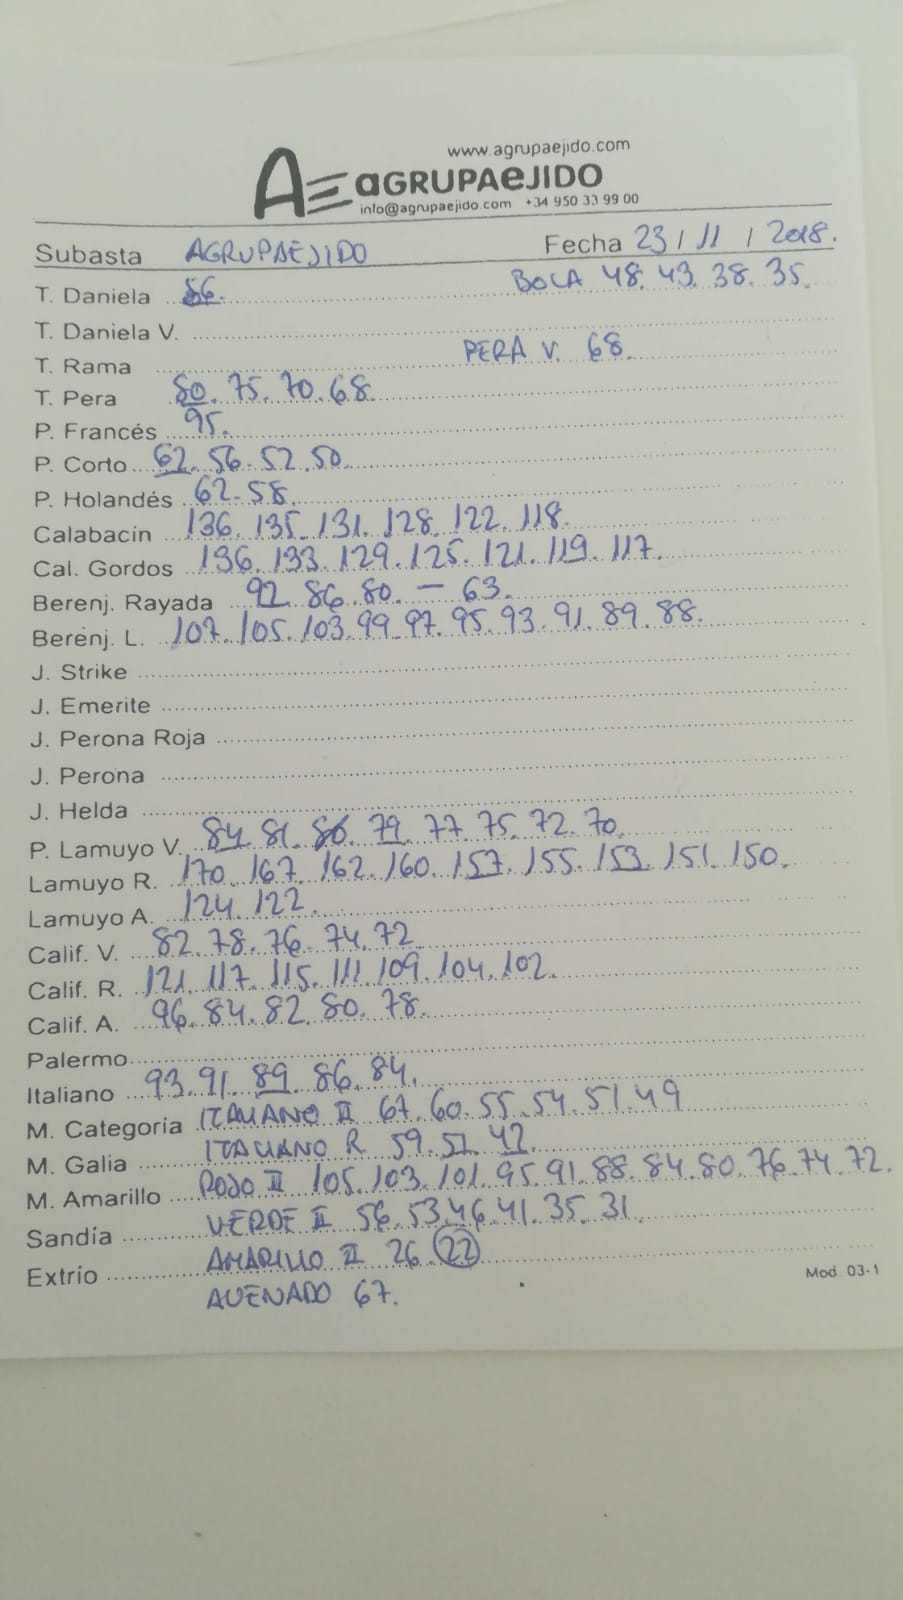 www.agrupaejido.com
AE aGRUPAeJIDO
info@agrupaejido.com +34 950 33 99 00
Subasta AGRUPAEJIDO Fecha 23 / 11 / 2018.
BOLA 48. 43. 38. 35.
T. Daniela 56.
T. Daniela V.
PERA V. 68.
T. Rama
T. Pera 80. 75. 70. 68.
P. Francés 95.
P. Corto 62. 56. 52. 50.
P. Holandés 62. 58.
Calabacin 136. 135. 131. 128. 122. 118.
Cal. Gordos 136. 133. 129. 125. 121. 119. 117.
Berenj. Rayada 92. 86. 80. — 63.
Berenj. L. 107. 105. 103. 99. 97. 95. 93. 91. 89. 88.
J. Strike
J. Emerite
J. Perona Roja
J. Perona
J. Helda
P. Lamuyo V. 84. 81. 80. 79. 77. 75. 72. 70.
Lamuyo R. 170. 167. 162. 160. 157. 155. 153. 151. 150.
Lamuyo A. 124. 122.
Calif. V. 82. 78. 76. 74. 72
Calif. R. 121. 117. 115. 111. 109. 104. 102.
Calif. A. 96. 84. 82. 80. 78.
Palermo
Italiano 93. 91. 89. 86. 84.
M. Categoria ITALIANO II 67. 60. 55. 54. 51. 49
M. Galia ITALIANO R 59. 51. 42.
M. Amarillo ROJO II 105. 103. 101. 95. 91. 88. 84. 80. 76. 74. 72.
Sandía VERDE II 56. 53. 46. 41. 35. 31.
Extrio AMARILLO II 26. 22
Mod. 03-1
AVENADO 67.